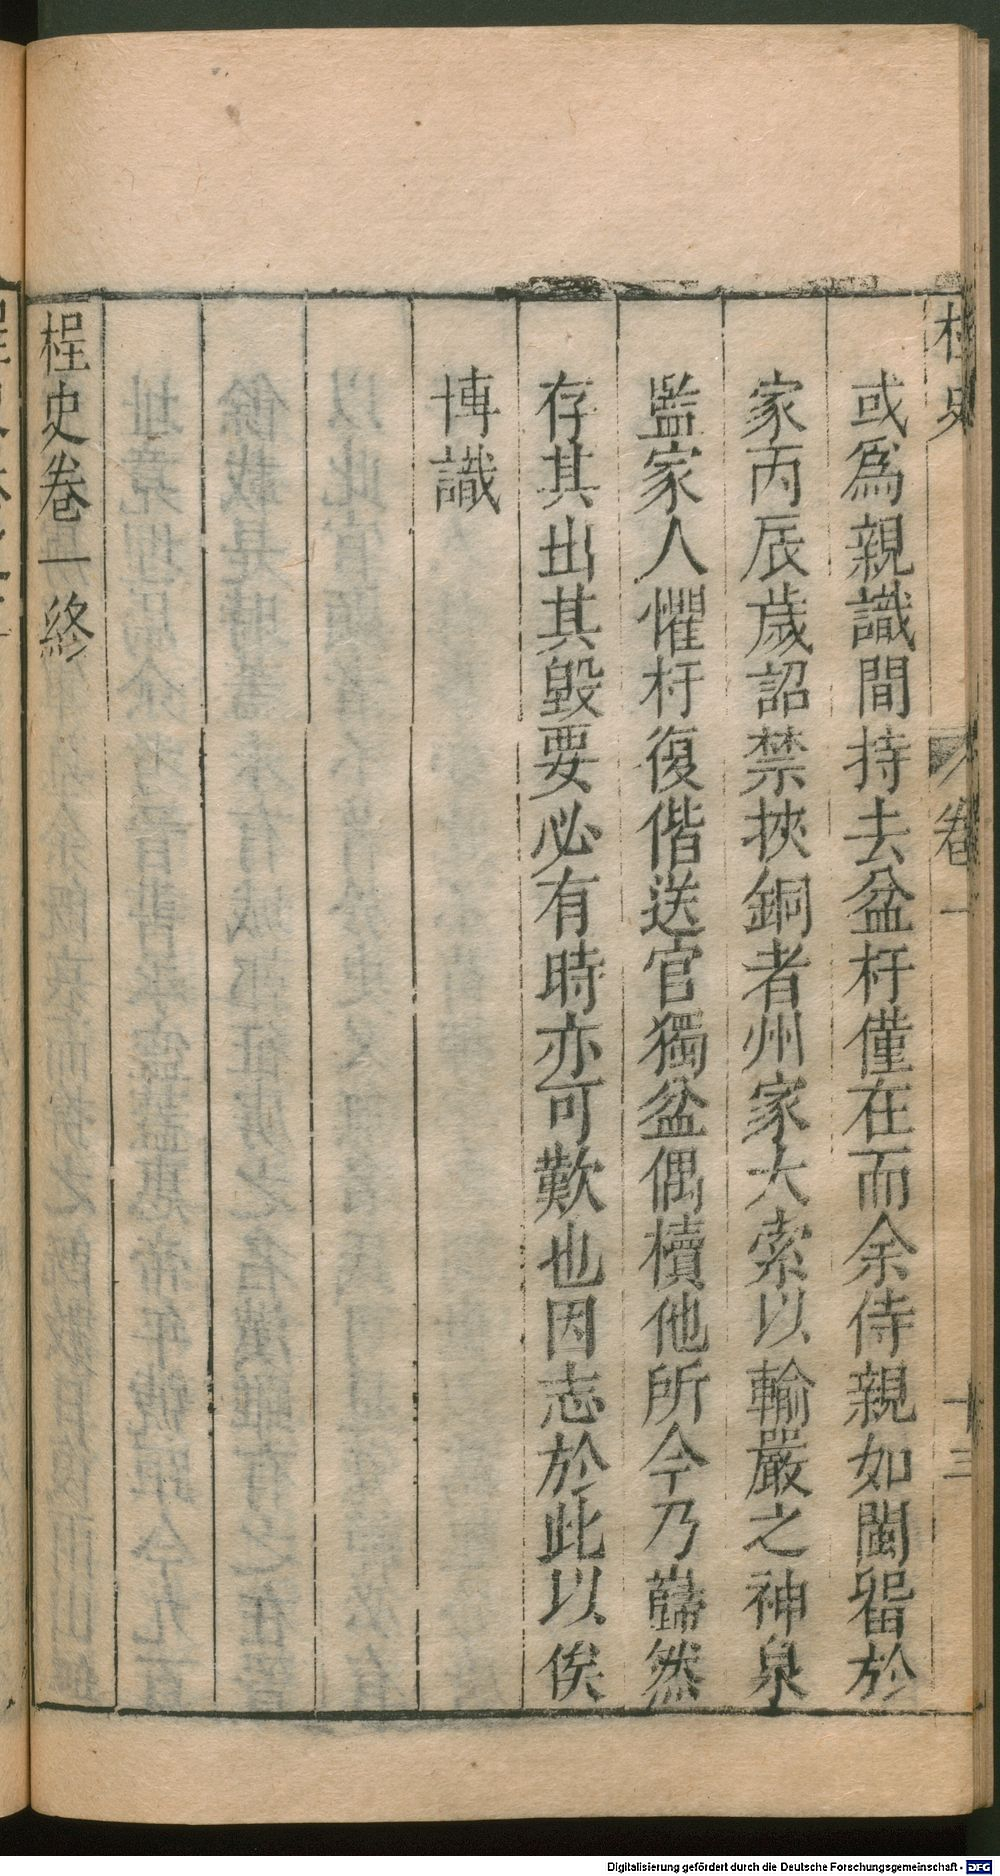 桯史 卷一 十三
或爲親識間持去盆杅僅在而余侍親如閩留於
家丙辰歲詔禁挾銅者州家大索以輸嚴之神泉
監家人懼杅復偕送官獨盆偶櫝他所今乃巋然
存其出其毀要必有時亦可歎也因志於此以俟
博識
桯史卷一終
Digitalisierung gefördert durch die Deutsche Forschungsgemeinschaft - DFG